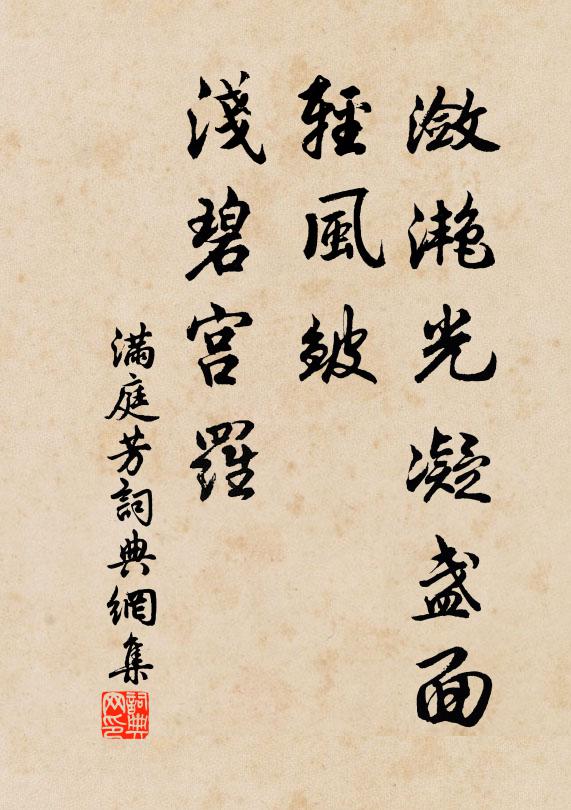 瀲灩光凝盞面
輕風皴
淺碧宮羅
滿庭芳詞典網集
詞典网印